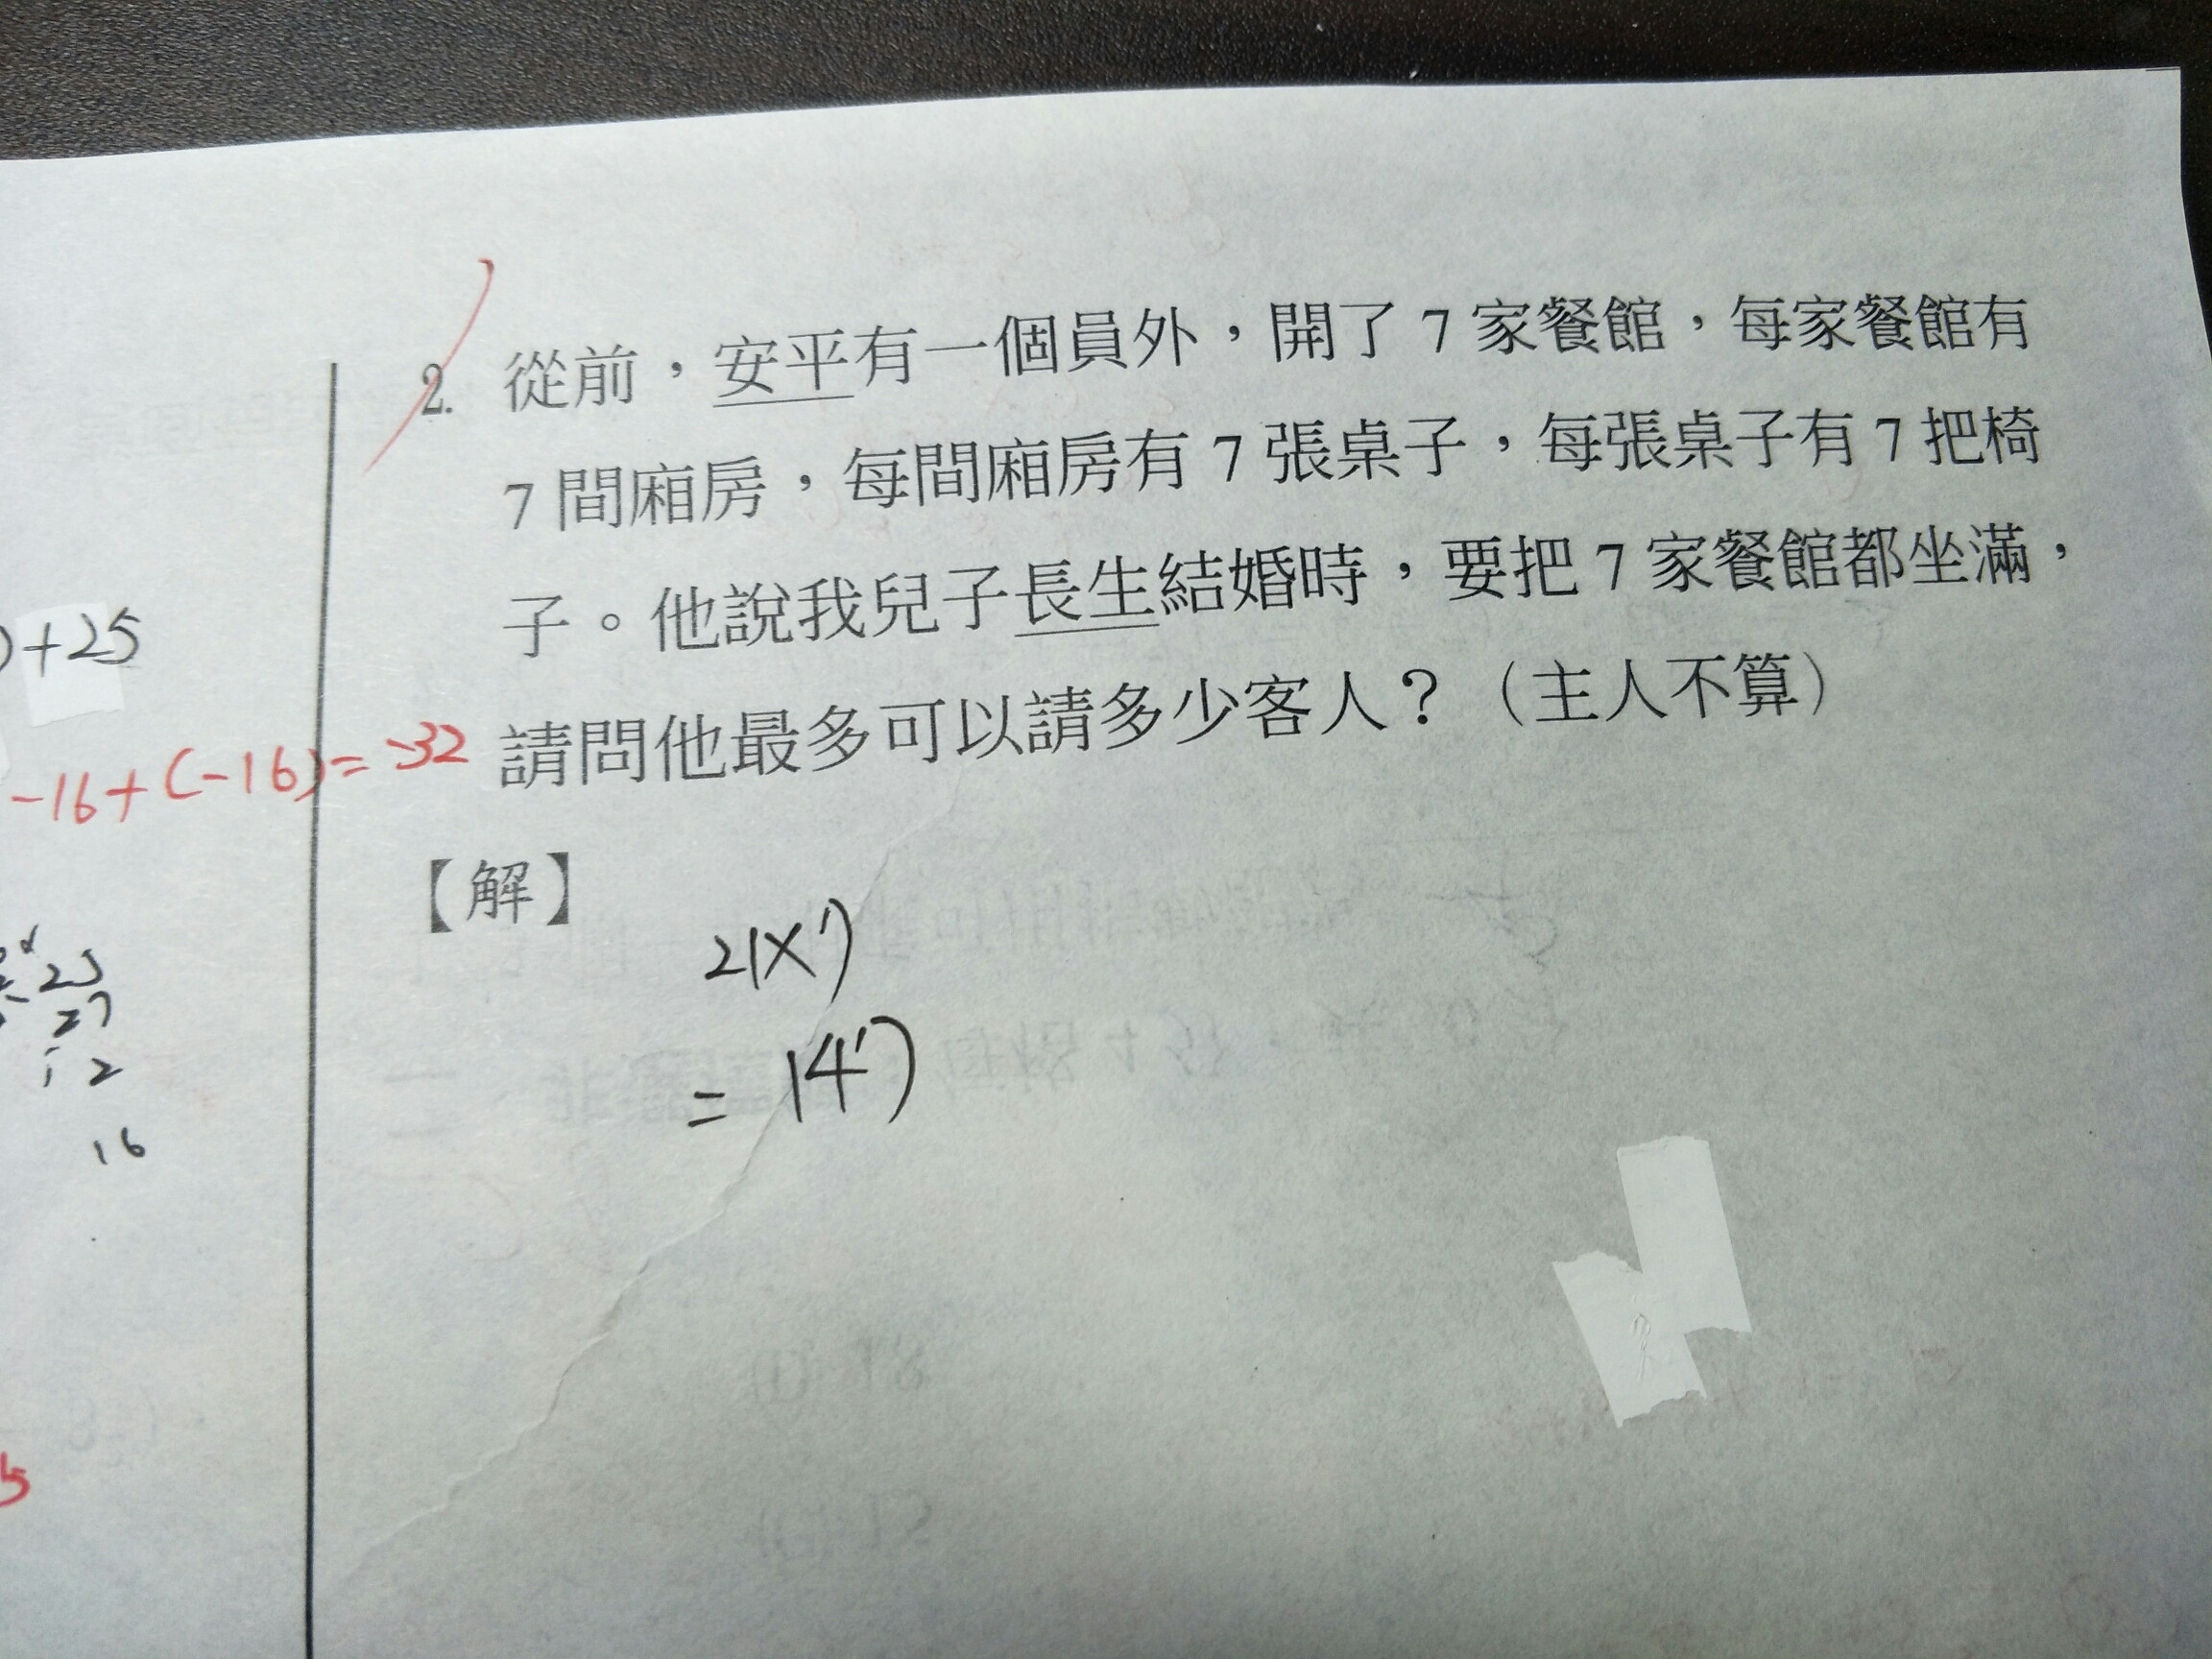 2. 從前，安平有一個員外，開了 7 家餐館，每家餐館有
7 間廂房，每間廂房有 7 張桌子，每張桌子有 7 把椅
子。他說我兒子長生結婚時，要把 7 家餐館都坐滿，
請問他最多可以請多少客人？（主人不算）
【解】
21×7
= 147
)+25
-16+(-16)=-32
23
27
12
16
5